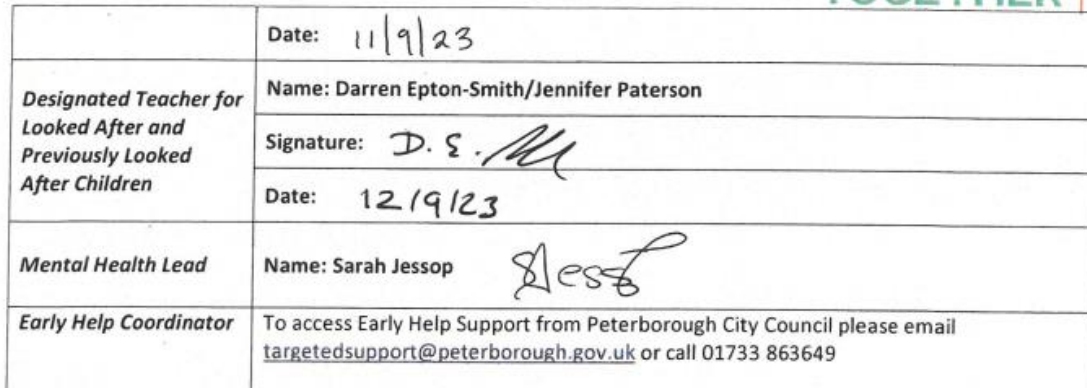 TOGETHER
Date: 11/9/23
Designated Teacher for
Looked After and
Previously Looked
After Children
Name: Darren Epton-Smith/Jennifer Paterson
Signature: D. E.
Date: 12/9/23
Mental Health Lead
Name: Sarah Jessop
Early Help Coordinator
To access Early Help Support from Peterborough City Council please email
targetedsupport@peterborough.gov.uk or call 01733 863649